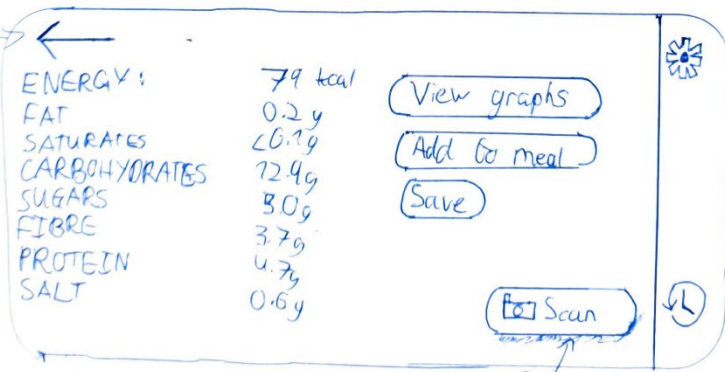 ENERGY: 79 kcal
FAT 0.2g
SATURATES <0.1g
CARBOHYDRATES 12.9g
SUGARS 3.0g
FIBRE 3.7g
PROTEIN 4.7g
SALT 0.6g
View graphs
Add to meal
Save
Scan